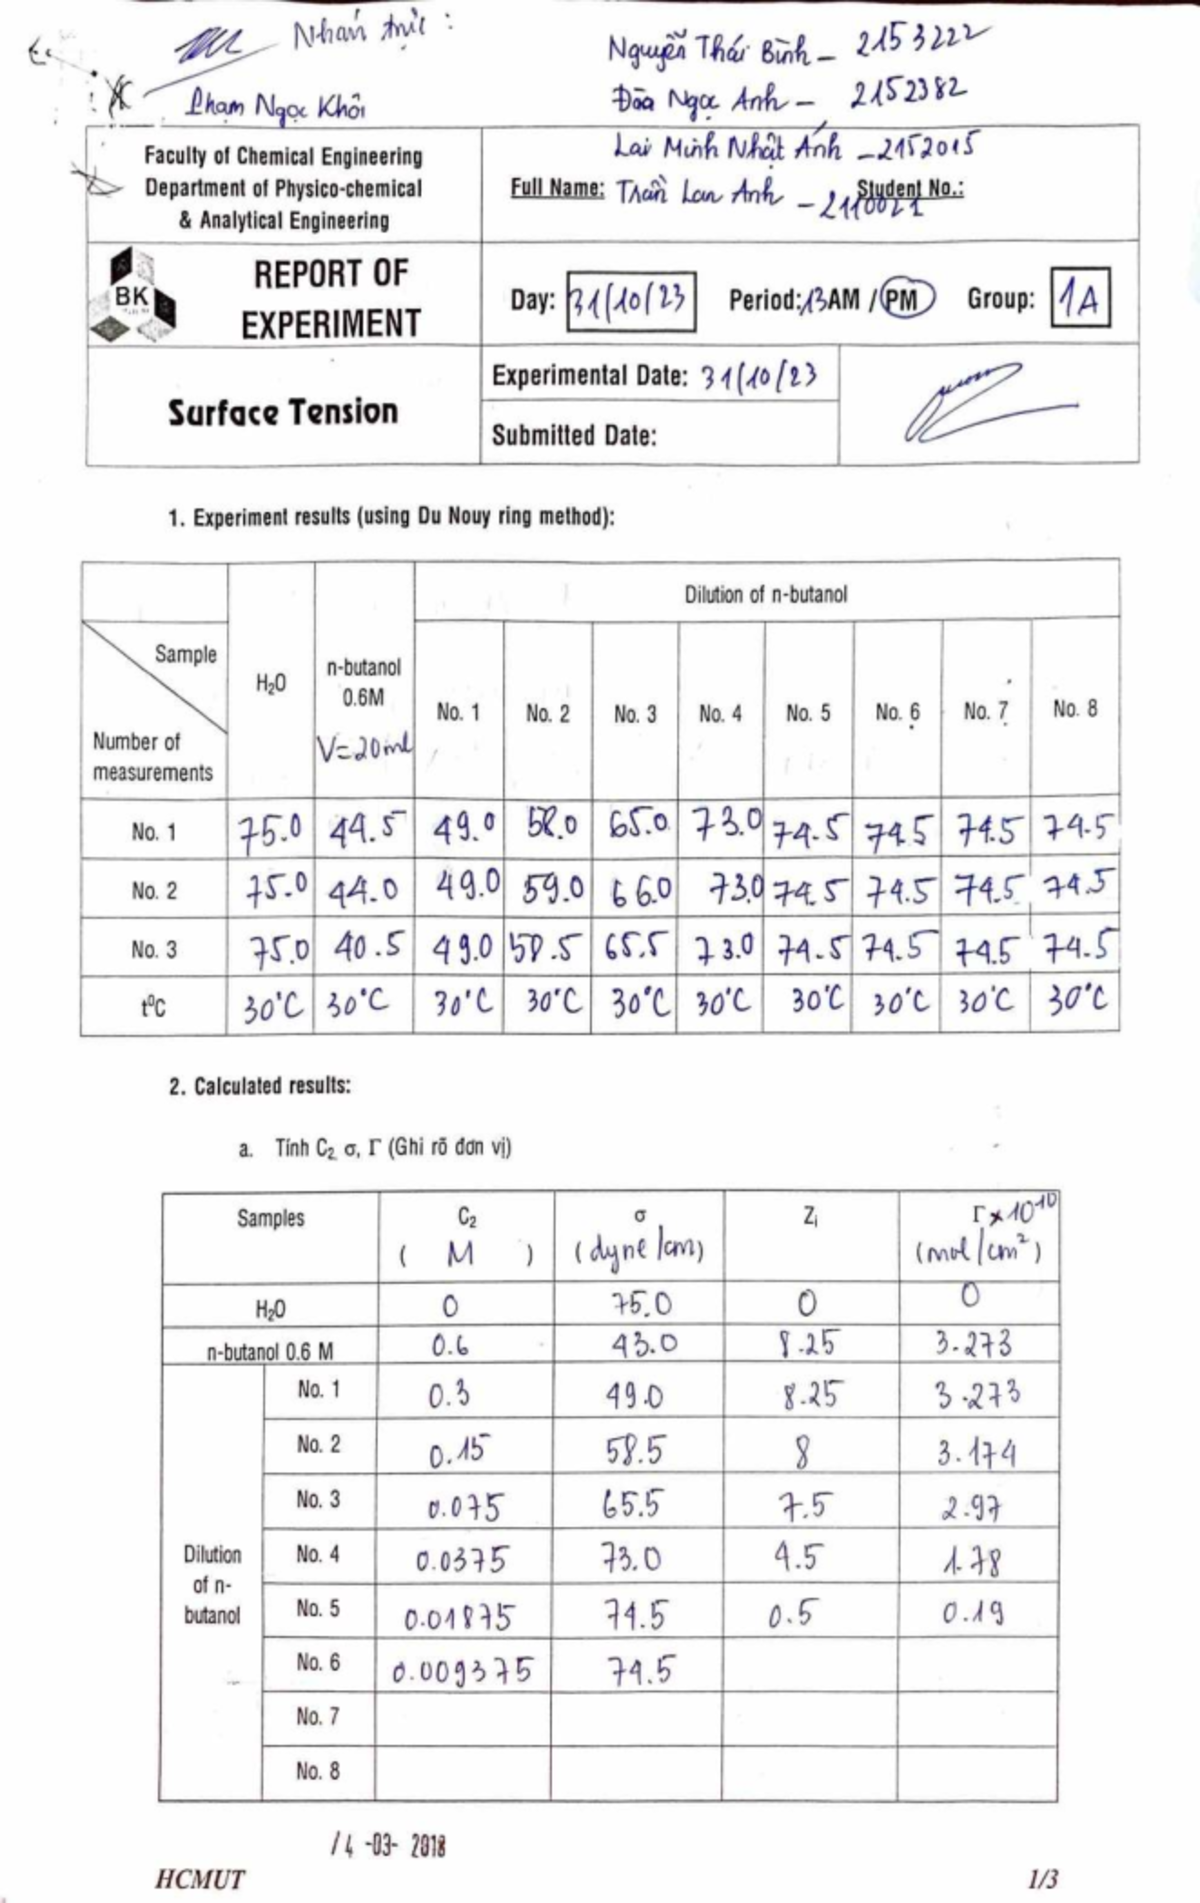 Nhan trực :
Phạm Ngọc Khôi
Nguyễn Thái Bình - 2153222
Đào Ngọc Anh - 2152382
Lai Minh Nhật Ánh - 2152015
Full Name: Trần Lan Anh - 2110021 Student No.:
Faculty of Chemical Engineering
Department of Physico-chemical
& Analytical Engineering
BK
REPORT OF
EXPERIMENT
Day: 31/10/23 Period: 13AM / PM Group: 1A
Surface Tension
Experimental Date: 31/10/23
Submitted Date:
1. Experiment results (using Du Nouy ring method):
Sample
Number of
measurements
H₂O
n-butanol
0.6M
V=20ml
Dilution of n-butanol
No. 1 No. 2 No. 3 No. 4 No. 5 No. 6 No. 7 No. 8
No. 1 75.0 44.5 49.0 58.0 65.0 73.0 74.5 74.5 74.5 74.5
No. 2 75.0 44.0 49.0 59.0 66.0 73.0 74.5 74.5 74.5 74.5
No. 3 75.0 40.5 49.0 58.5 65.5 73.0 74.5 74.5 74.5 74.5
t⁰C 30°C 30°C 30°C 30°C 30°C 30°C 30°C 30°C 30°C 30°C
2. Calculated results:
a. Tính C₂, σ, Γ (Ghi rõ đơn vị)
Samples C₂ σ Zᵢ Γ x 10¹⁰
( M ) (dyne/cm) (mol/cm²)
H₂O 0 75.0 0 0
n-butanol 0.6 M 0.6 43.0 8.25 3.273
Dilution
of n-
butanol
No. 1 0.3 49.0 8.25 3.273
No. 2 0.15 58.5 8 3.174
No. 3 0.075 65.5 7.5 2.97
No. 4 0.0375 73.0 4.5 1.78
No. 5 0.01875 74.5 0.5 0.19
No. 6 0.009375 74.5
No. 7
No. 8
/4 -03- 2018
HCMUT 1/3